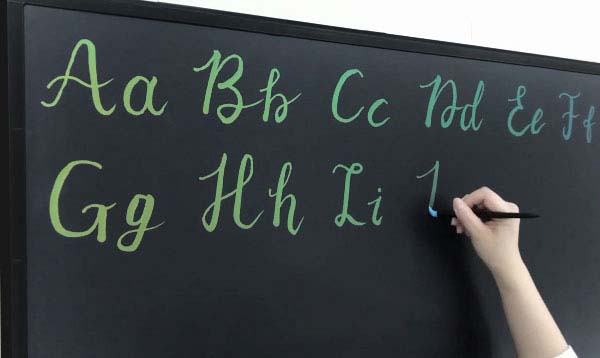 Aa Bb Cc Dd Ee Ff
Gg Hh Ii